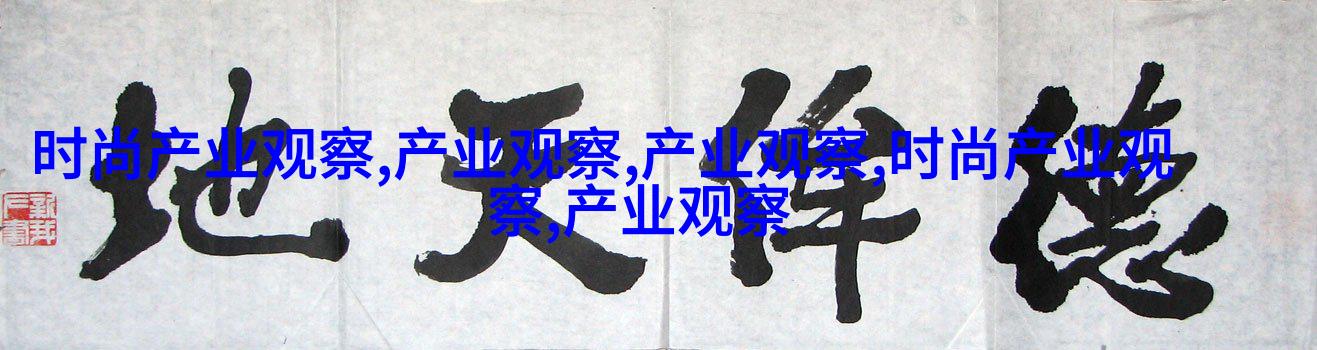 德侔天地
时尚产业观察,产业观察,产业观察,时尚产业观
察,产业观察